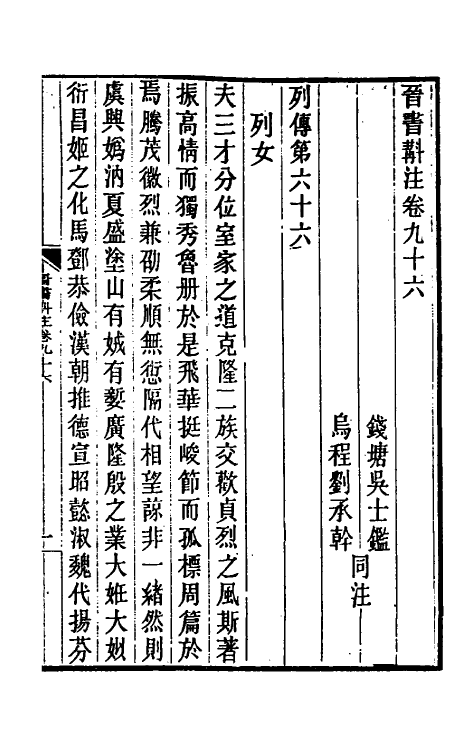 晉書斠注卷九十六
錢塘吳士鑑
烏程劉承幹
同注
列傳第六十六
列女
夫三才分位室家之道克隆二族交歡貞烈之風斯著
振高情而獨秀魯册於是飛華挺峻節而孤標周篇於
焉騰茂徽烈兼劭柔順無愆隔代相望諒非一緒然則
虞興嬀汭夏盛塗山有娀有㜪廣隆殷之業大姙大姒
衍昌姬之化馬鄧恭儉漢朝推德宣昭懿淑魏代揚芬
晉書斠注卷九十六
一